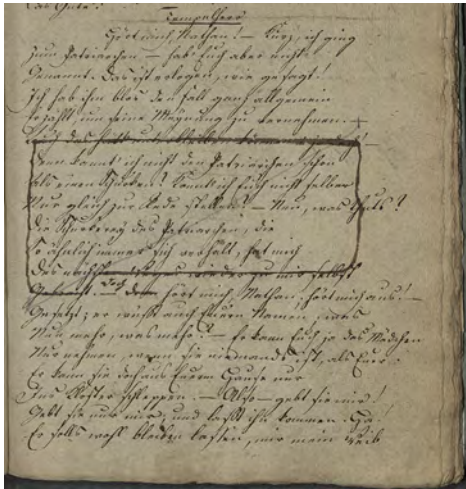 Tempelherr
Hört mich, Nathan! — Kurz, ich ging
Zum Patriarchen — hab Euch aber nicht
Genannt. Das ist erlogen, wie gesagt!
Ich hab ihm blos den Fall ganz allgemein
Erzählt um seine Meynung zu vernehmen. —
Auch das hätt unterbleiben können
Denn kannt' ich nicht den Patriarchen schon
Als einen Schurken? Konnt ich Euch nicht selber
Nur gleich zur Rede stellen? — Nun, was thuts?
Die Schurkerey des Patriarchen, die
So ähnlich immer sich verhält, hat mich
Des nächsten wieder zu mir selbst
Gebracht. — Doch hört mich, Nathan, hört mich aus! —
Gesetzt, er wüßt auch Euren Namen, was
Nun mehr, was mehr? — Er kann Euch ja das Mädchen
Nur nehmen, wenn sie niemands ist, als Euer.
Er kann sie doch aus Eurem Hause nur
Ins Kloster schleppen. — Also — gebt sie mir!
Gebt sie nur mir, und laßt ihn kommen. Ha!
Er solls wohl bleiben lassen, mir mein Weib